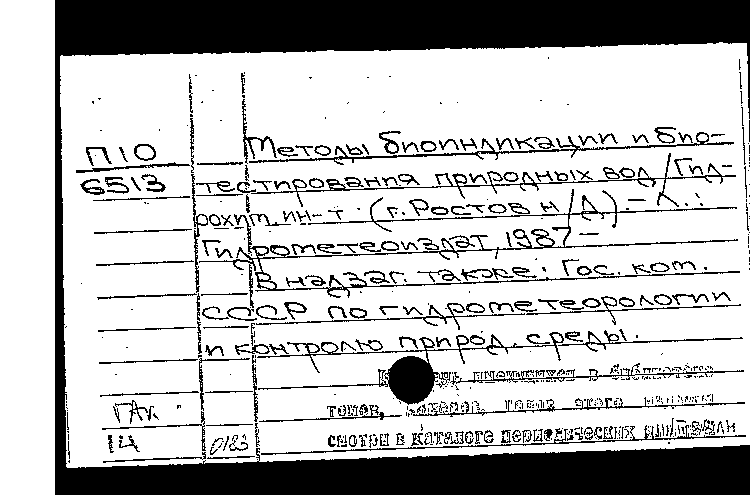 П10
6513
Методы биоиндикации и био-
тестирования природных вод / Гид-
рохим. ин-т. (г. Ростов н/Д). – Л.:
Гидрометеоиздат, 1987 –
В надзаг. также: Гос. ком.
СССР по гидрометеорологии
и контролю природ. среды.
имеющихся в библиотеке
томов, номеров, годов этого издания
смотри в каталоге периодических
ГАк
14
0183